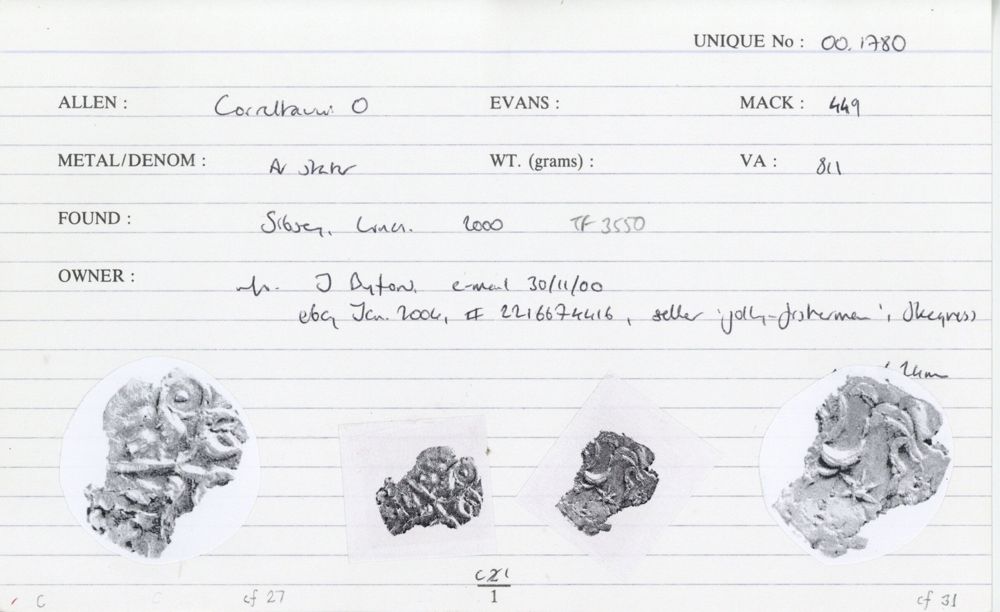 UNIQUE No : 00.1780
ALLEN : Corieltauvi O EVANS : MACK : 449
METAL/DENOM : AV stater WT. (grams) : VA : 811
FOUND : Sibsey, Lincs. 2000 TF 3550
OWNER : J e-mail 30/11/00
ebay Jan. 2004, # 2216674416, seller 'jolly-fisherman', Skegness
24mm
1
C cf 27 cf 31